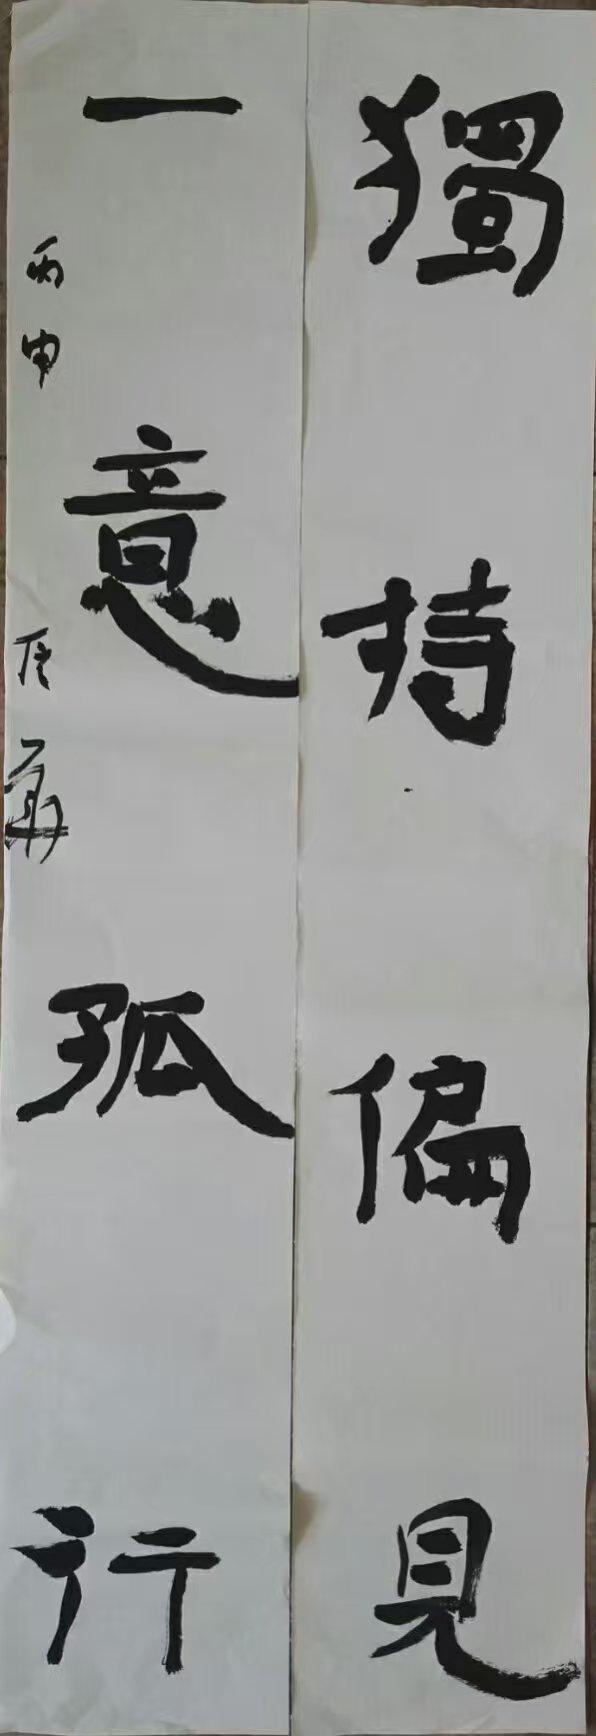 獨持偏見
一意孤行
丙申